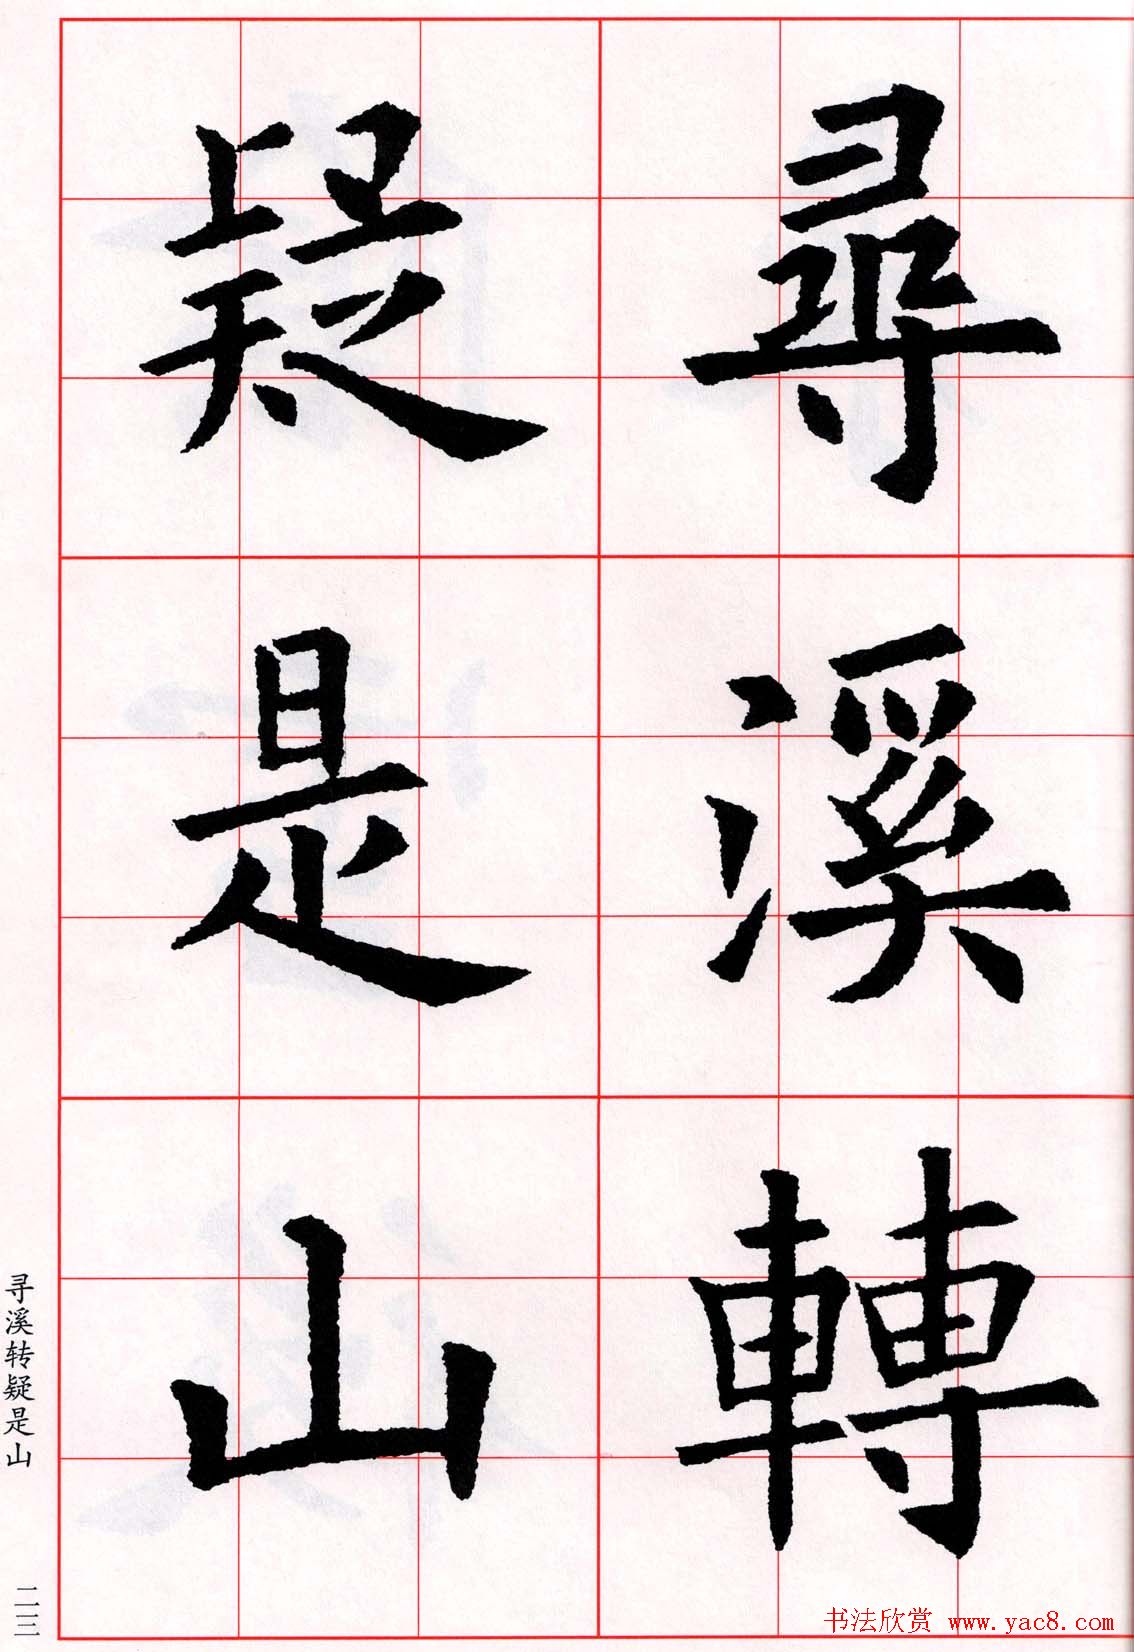 尋溪轉
疑是山
寻溪转疑是山
二三
书法欣赏 www.yac8.com